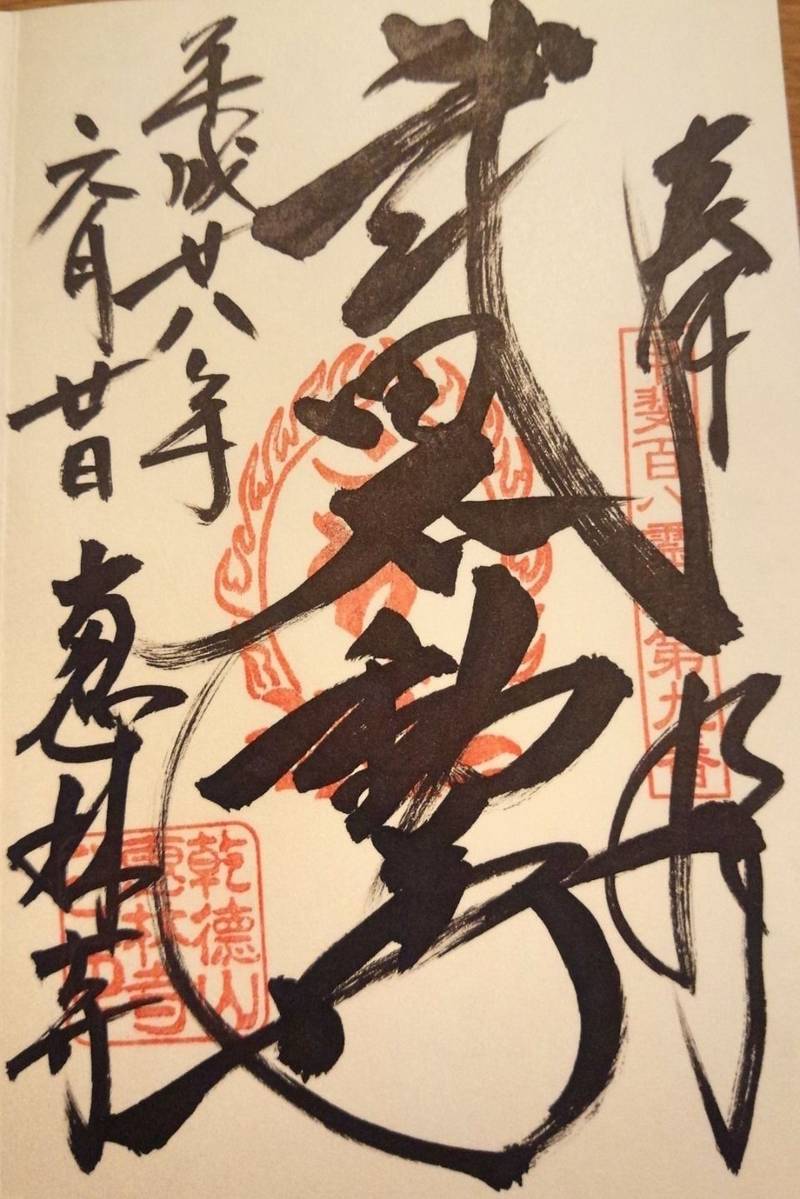 奉拝
甲斐百八霊場第九番
武田不動尊
平成廿八年
六月廿日
惠林寺
乾徳山
惠林寺
之印